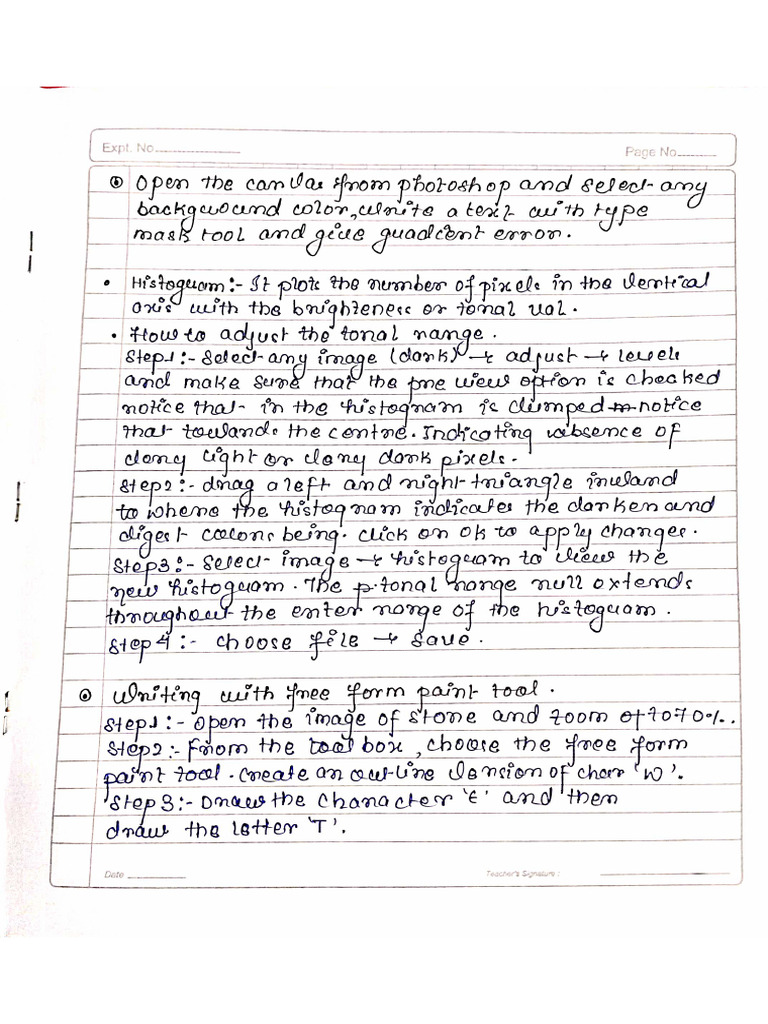 Expt. No.
Page No.
Open the canvas from photoshop and select any
background color, write a text with type
mask tool and give guadient error.
• Histogram:- It plots the number of pixels in the vertical
axis with the brighteness or tonal val.
• How to adjust the tonal range.
Step1:- Select any image (dark) → adjust → levels
and make sure that the pre view option is checked
notice that in the histogram is clumped notice
that towards the centre. Indicating absence of
light or dark pixels.
Step2:- drag a left and right triangle inward
to where the histogram indicates the darken and
digest colors being. click on ok to apply changes.
Step3:- Select image → histogram to view the
new histogram. The tonal range null extends
throughout the enter range of the histogram.
Step4:- choose file → save.
Writing with free form paint tool.
Step1:- open the image of stone and zoom of to 70%.
Step2:- From the tool box, choose the free form
paint tool. Create an out-line version of char 'W'.
Step3:- Draw the character 'E' and then
draw the letter 'T'.
Date
Teacher's Signature :